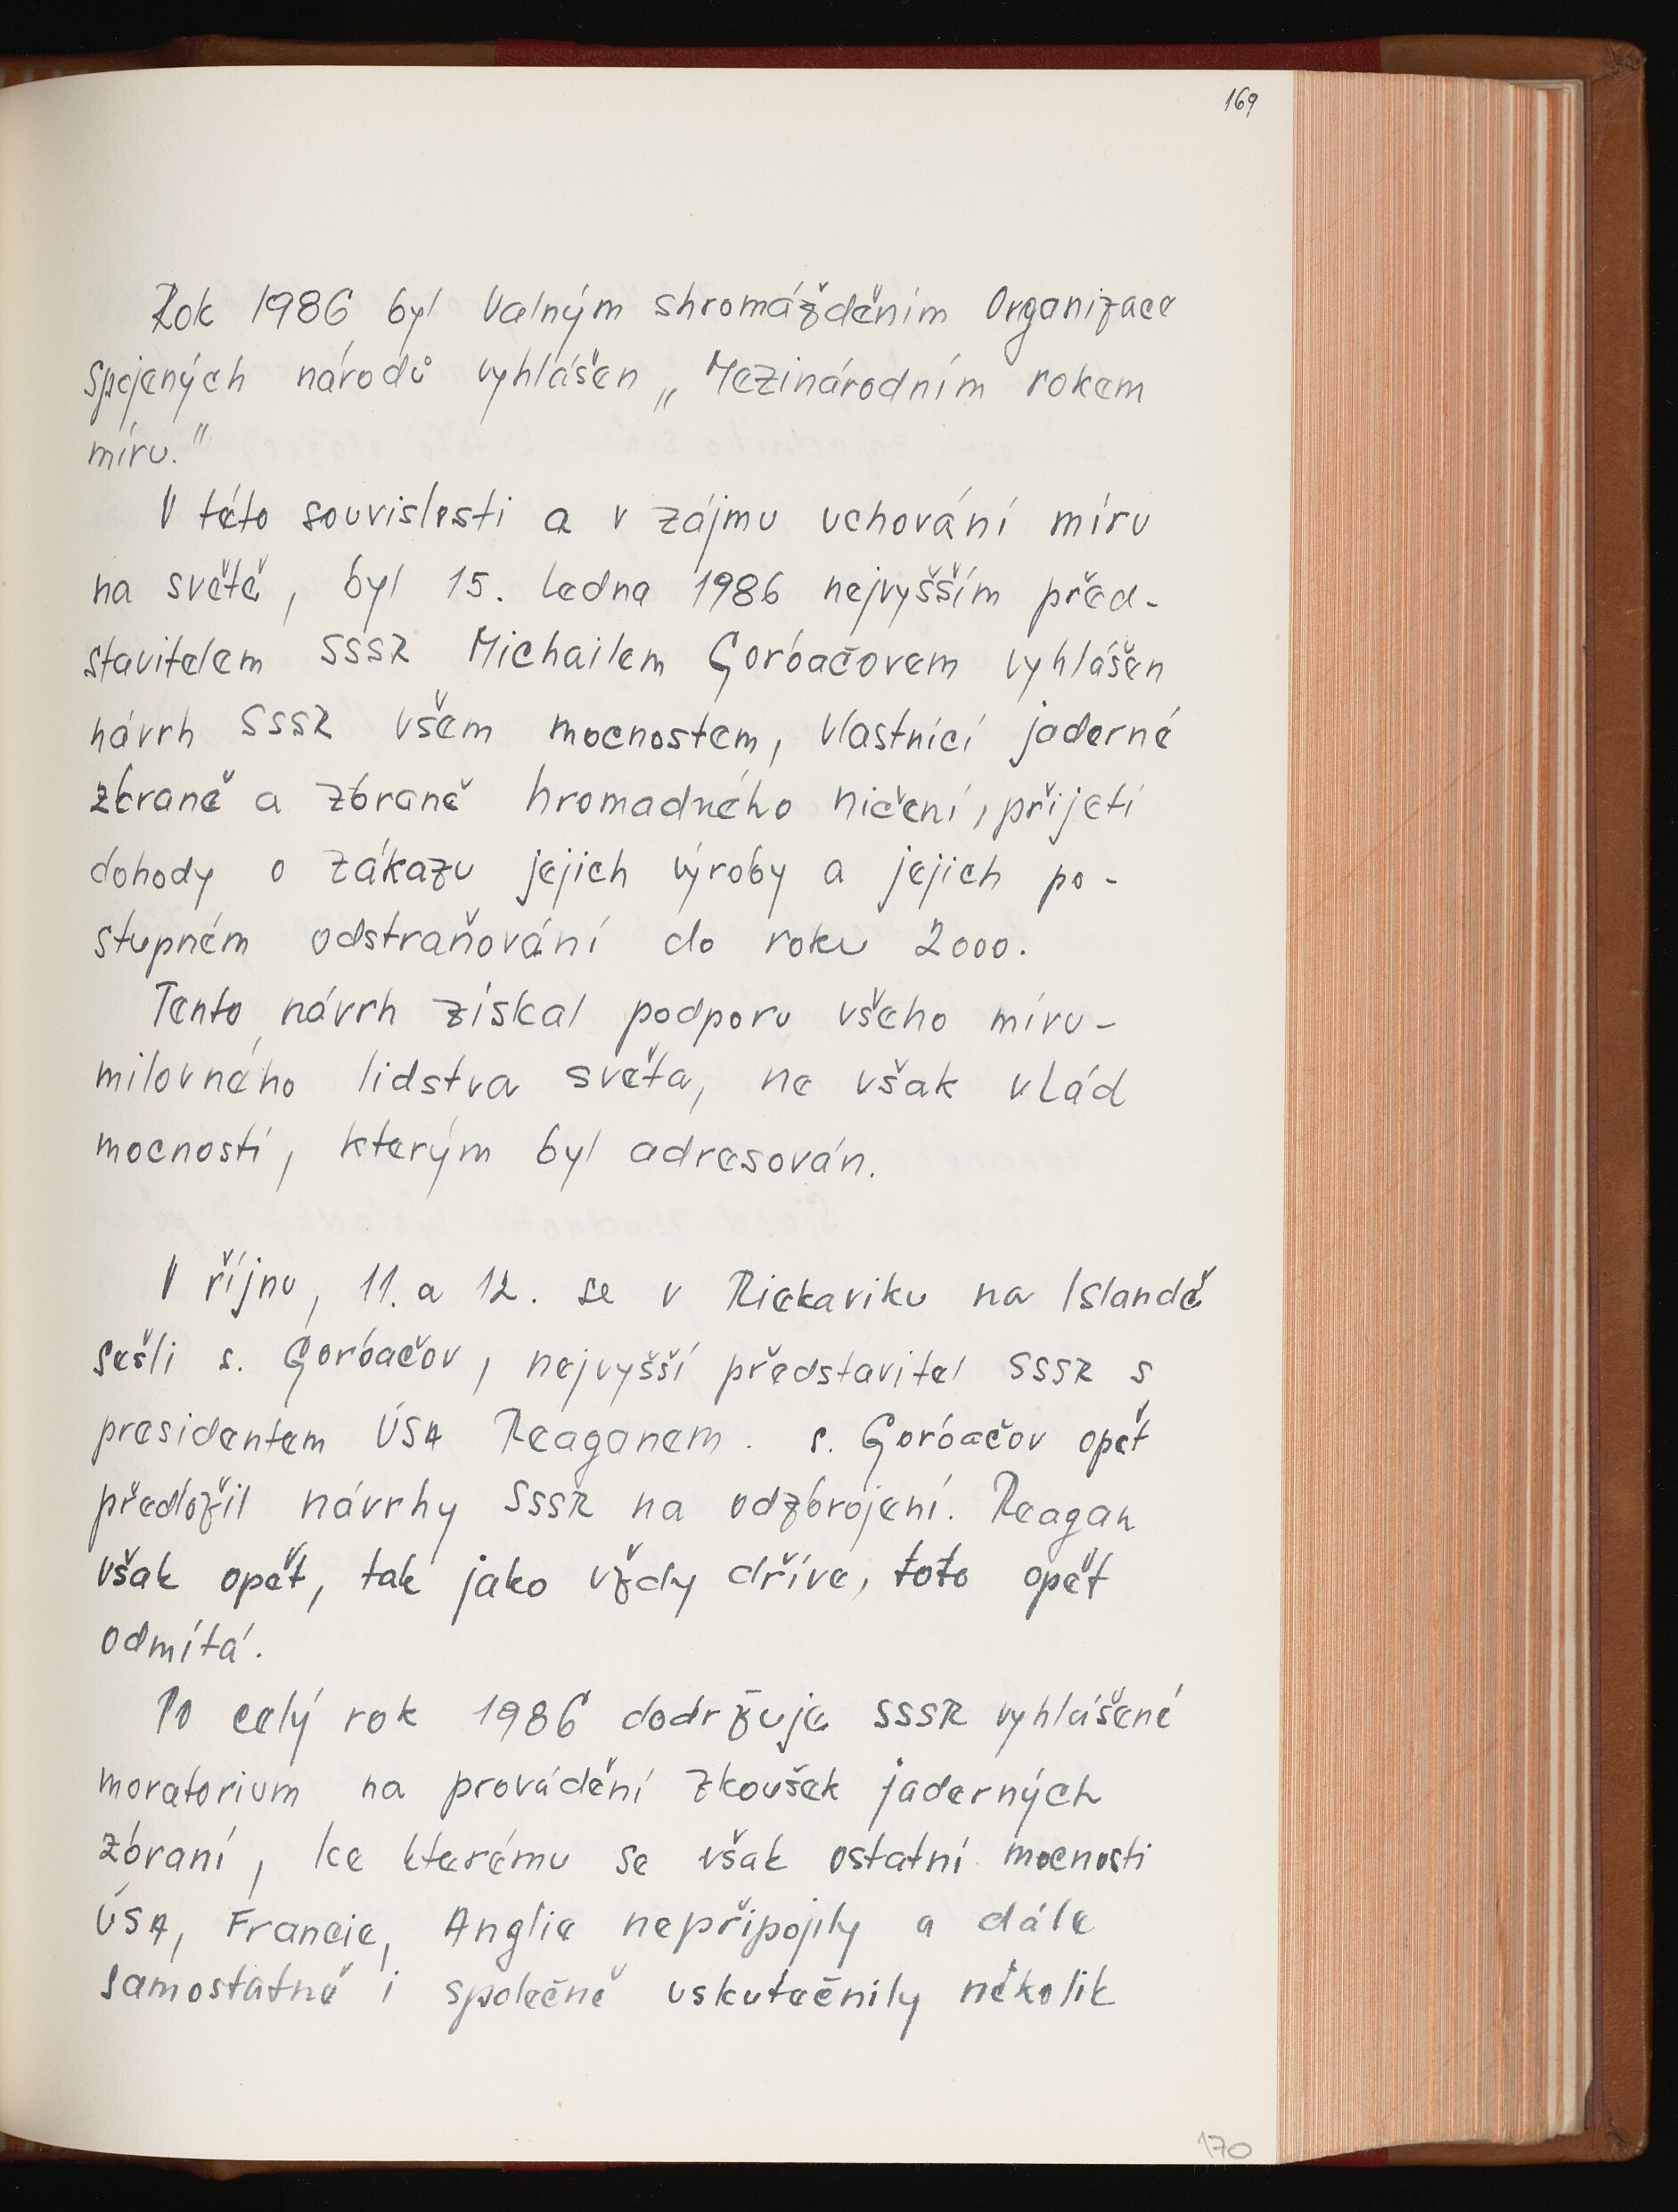 169
Rok 1986 byl Valným shromážděním Organizace
Spojených národů vyhlášen „Mezinárodním rokem
míru."
V této souvislosti a v zájmu uchování míru
na světě, byl 15. ledna 1986 nejvyšším před-
stavitelem SSSR Michailem Gorbačovem vyhlášen
návrh SSSR všem mocnostem, vlastnící jaderné
zbraně a zbraně hromadného ničení, přijetí
dohody o zákazu jejich výroby a jejich po-
stupném odstraňování do roku 2000.
Tento návrh získal podporu všeho míru-
milovného lidstva světa, ne však vlád
mocností, kterým byl adresován.
V říjnu, 11. a 12. se v Riekaviku na Islandě
sešli s. Gorbačov, nejvyšší představitel SSSR s
presidentem ÚSA Reaganem. s. Gorbačov opět
předložil návrhy SSSR na odzbrojení. Reagan
však opět, tak jako vždy dříve, toto opět
odmítá.
Po celý rok 1986 dodržuje SSSR vyhlášené
moratorium na provádění zkoušek jaderných
zbraní, ke kterému se však ostatní mocnosti
ÚSA, Francie, Anglie nepřipojily a dále
samostatně i společně uskutečnily několik
170